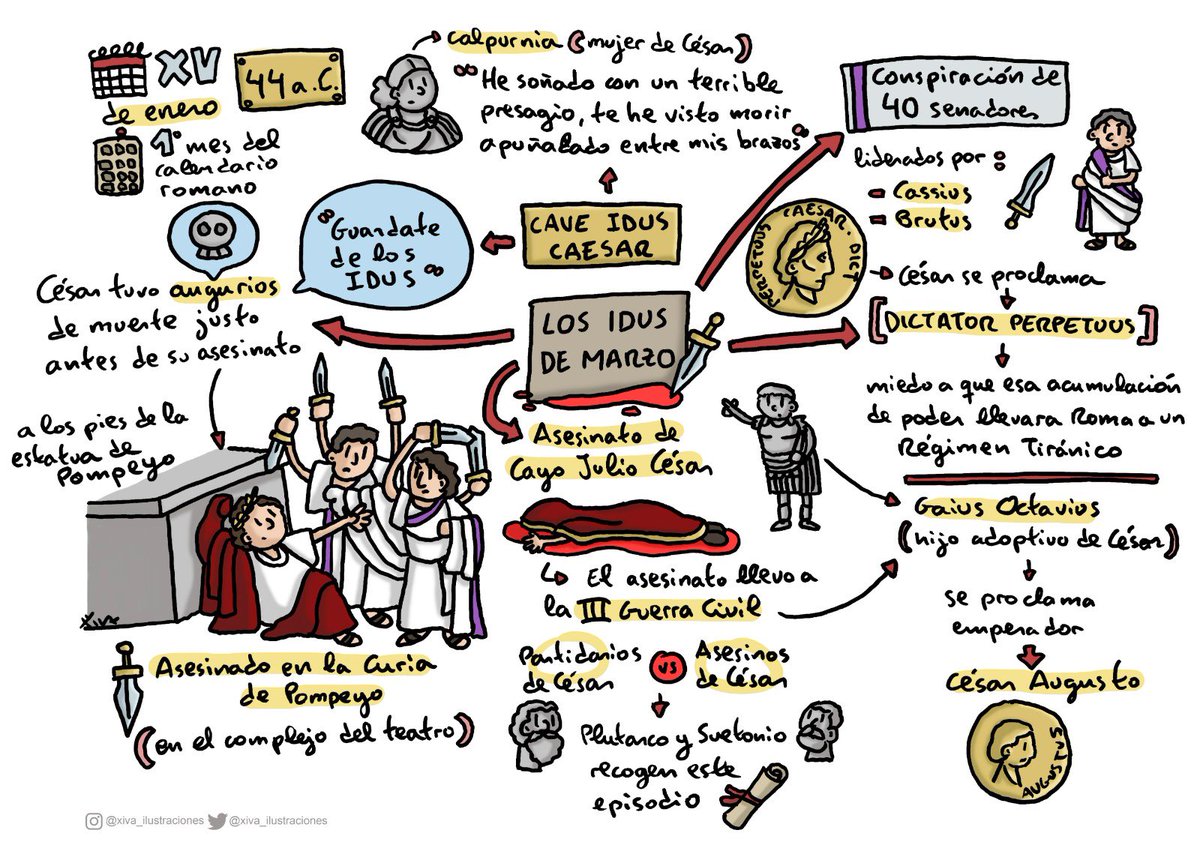 XV
44 a.C.
de enero
1º mes del
calendario
romano
Calpurnia (mujer de César)
"He soñado con un terrible
presagio, te he visto morir
apuñalado entre mis brazos"
Conspiración de
40 senadores
liderados por:
- Cassius
- Brutus
CAVE IDUS
CAESAR
"Guardate
de los
IDUS"
César tuvo augurios
de muerte justo
antes de su asesinato
a los pies de la
estatua de
Pompeyo
LOS IDUS
DE MARZO
PERPETUUS CAESAR. DICT
César se proclama
[DICTATOR PERPETUUS]
miedo a que esa acumulación
de poder llevara Roma a un
Régimen Tiránico
Asesinato de
Cayo Julio César
El asesinato llevo a
la III Guerra Civil
Partidarios
de César
vs
Asesinos
de César
Plutarco y Suetonio
recogen este
episodio
Gaius Octavius
(hijo adoptivo de César)
se proclama
emperador
César Augusto
AUGUSTUS
Xiva
Asesinado en la Curia
de Pompeyo
(en el complejo del teatro)
@xiva_ilustraciones @xiva_ilustraciones